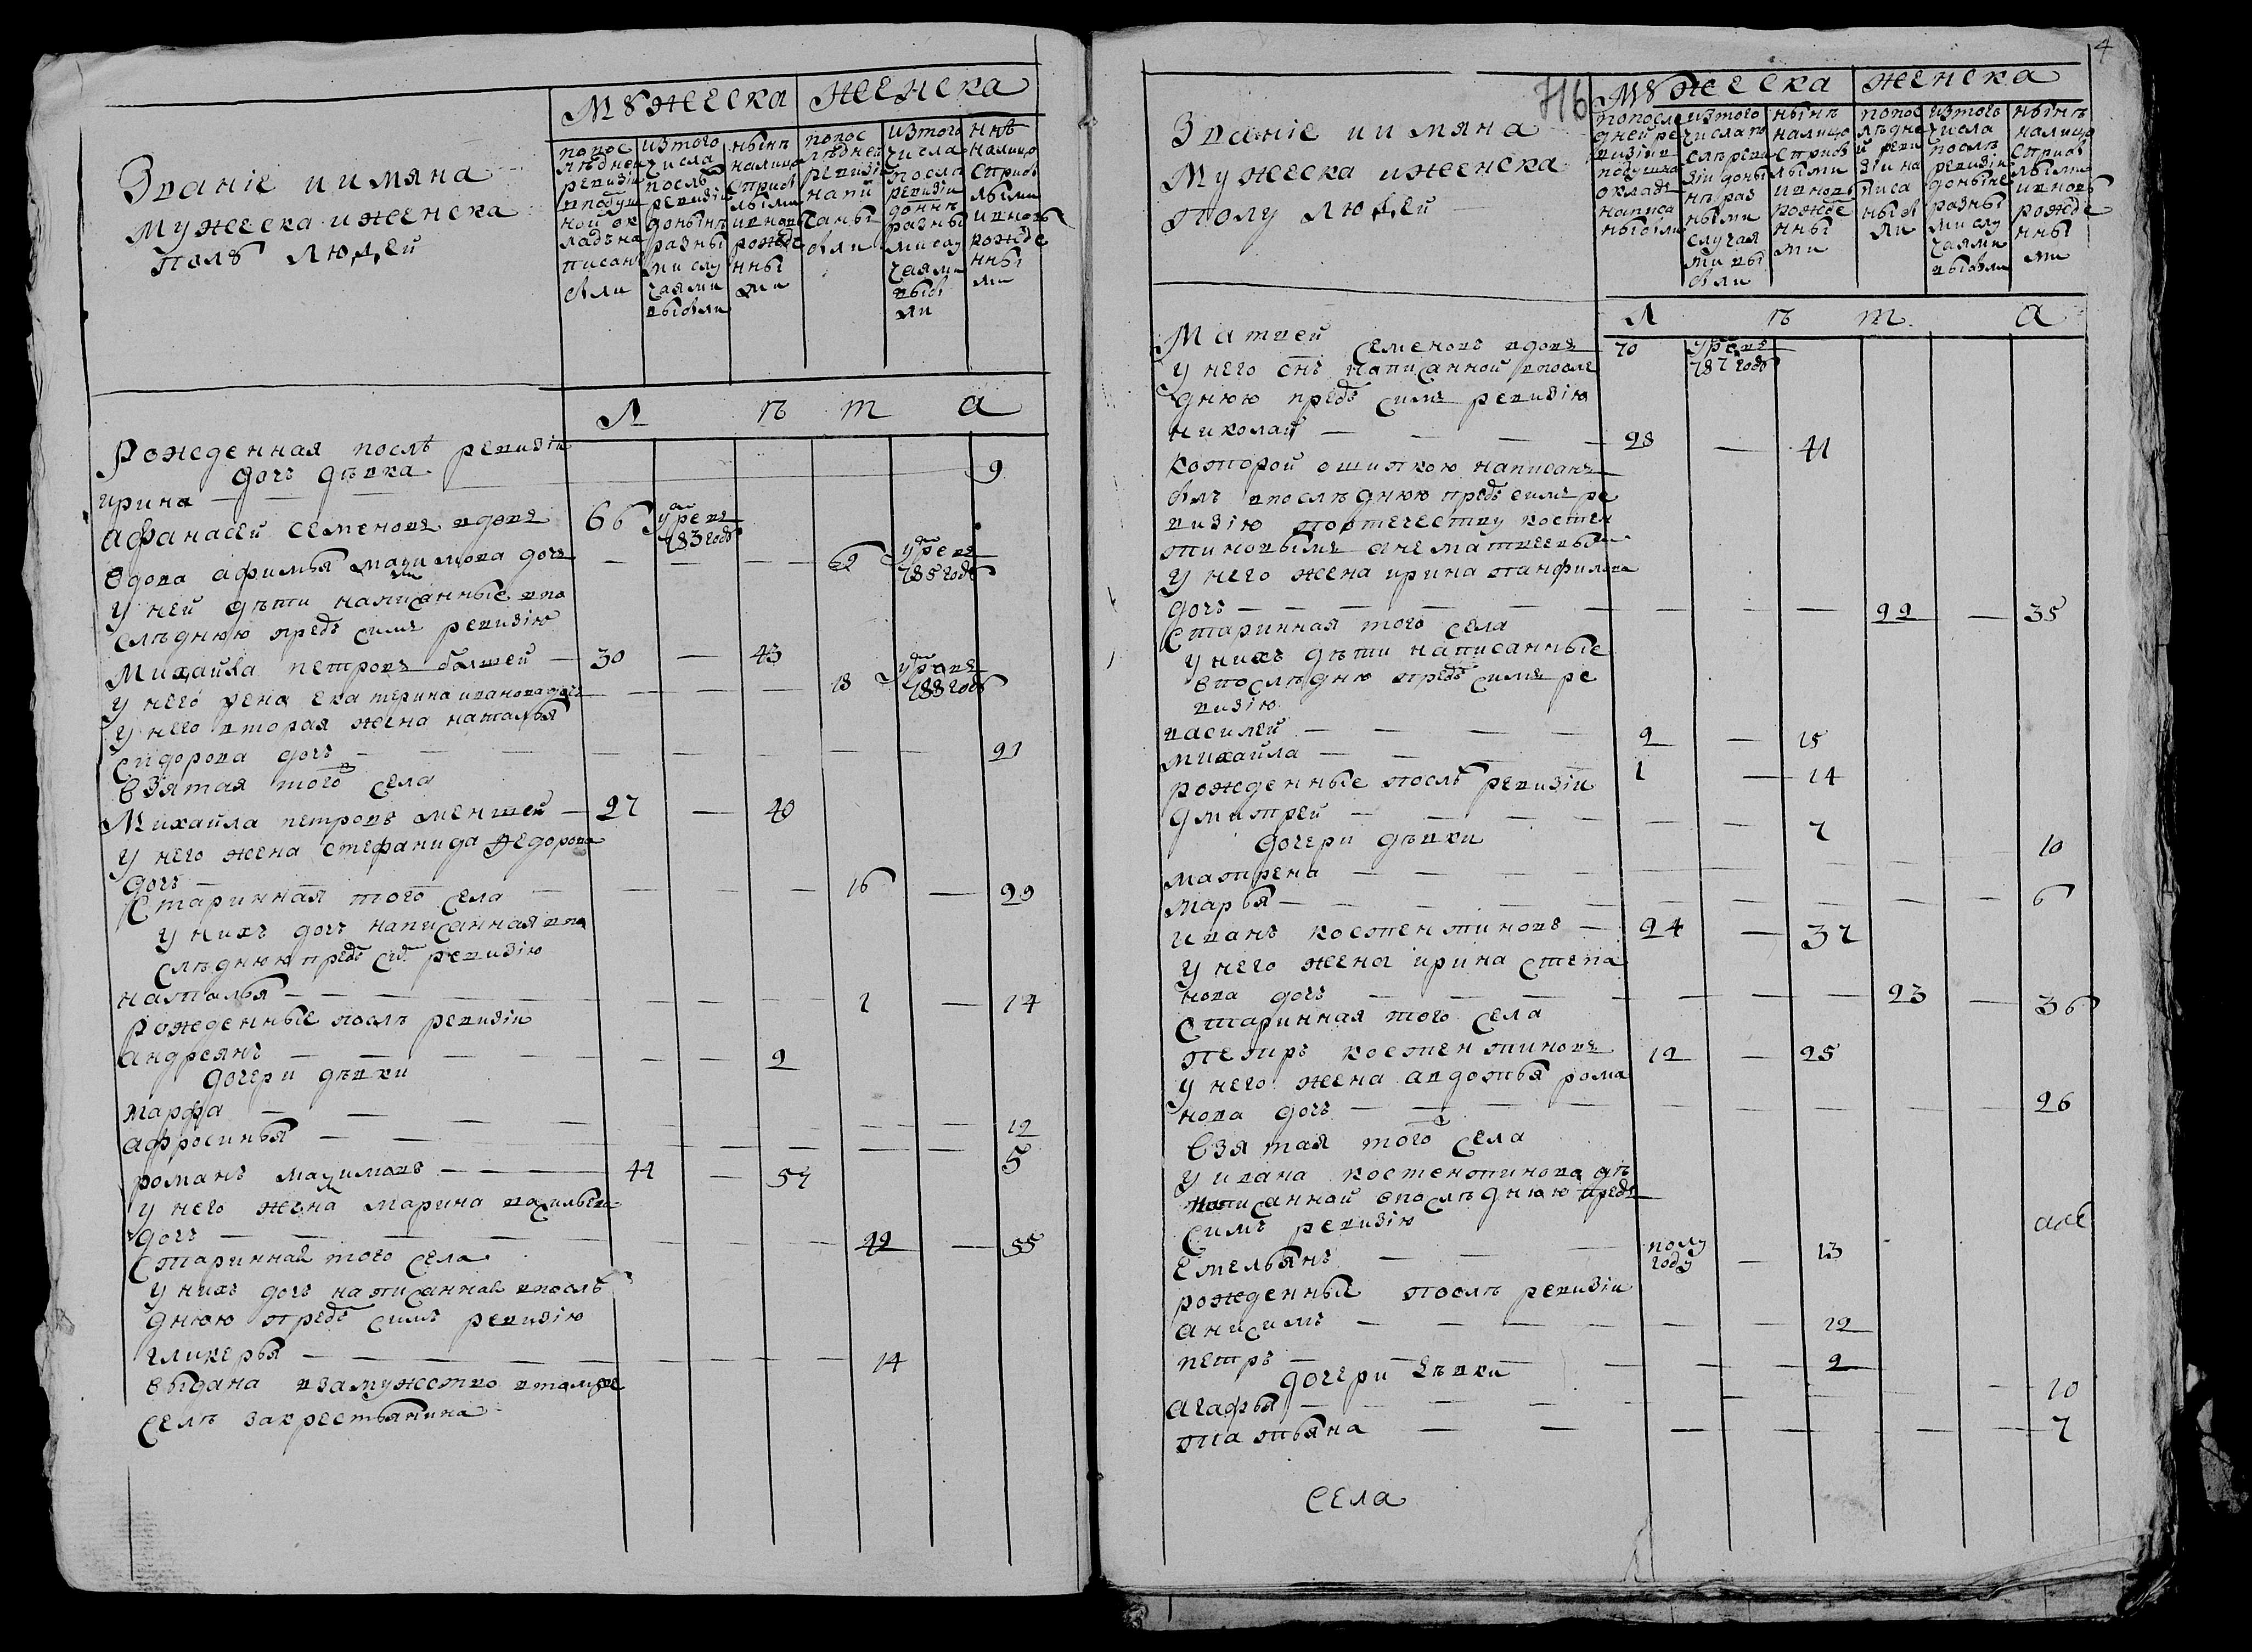 Мꙋжеска Женска
Званіе иимяна
мужеска иженска
полꙋ людей
попос лѣдней ревизіи вподуш ной ок ладъ на писаны были
изтого числа послѣ ревизіи донынѣ разны ми слу чаями выбыли
нынѣ налицо сприбы лыми ивновь рожде нны ми
попос лѣдней ревизіи напи саны были
изтого числа послѣ ревизіи донынѣ разны ми слу чаями выбы ли
ннѣ налицо сприбы лыми ивновь рожде нны ми
Л ѣ т а
Рожденная послѣ ревизіи
дочь дѣвка
ирина — 9
афанасей семеновъ вдовъ 66 умре въ 783 годꙋ
вдова афимья максимова дочь — 62 умре въ 785 годꙋ
у ней дѣти написанные впо
слѣднюю предъ симъ ревизию
Михайла петровъ болшей — 30 — 43
у него жена екатерина иванова дочь — 18 умре въ 788 годꙋ
у него вторая жена наталья
сидорова дочь — 21
взятая того села
Михайла петровъ меншей — 27 — 40
у него жена стефанида Федорова
дочь —
Старинная того села — 16 — 29
у нихъ дочь написанная впо
слѣднюю предъ сиѣ ревизію
наталья — 1 — 14
рожденные послѣ ревизіи
андреянъ — 2
дочери дѣвки
марфа — 12
афросинья — 5
романъ максимовъ — 44 — 57
у него жена марина васильева
дочь — 42 — 55
Старинная того села
у нихъ дочь написанная впослѣ
днюю предъ симъ ревизію
гликерья — 14
выдана взамужество втомже
селѣ закрестьянина
4
716
Мꙋжеска женска
Званіе иимяна
Мужеска иженска
полу людей
попослѣ дней ре визіи в подушна окладъ написа ны были
изтого числа по слѣ реви зіи доны нѣ раз ными случая ми вы были
нынѣ налицо сприбы лыми ивновь рожде нны ми
попос лѣдне й реви зіи на писа ны бы ли
изтого числа послѣ ревизіи донынѣ разны ми слу чаями выбыли
нынѣ налицо сприбы лыми ивновь рожде нны ми
Л ѣ т а
Матвей семеновъ вдовъ 70 умре въ 787 годꙋ
у него снъ написанной впослѣ
днюю предъ симъ ревизію
николай — 28 — 41
которой ошипкою написанъ
былъ впослѣднюю предъ симъ ре
визію поотечеству костен
тиновымъ анематвеевы
у него жена ирина панфилова
дочь — 22 — 35
Старинная того села
у нихъ дѣти написанные
впослѣдню предъ симъ ре
визію
василей — 2 — 15
михайла — 1 — 14
рожденные послѣ ревизіи
дмитрей — 7
дочери дѣвки
матрена — 10
марья — 6
иванъ костентиновъ — 24 — 37
у него жена ирина степа
нова дочь — 23 — 36
Старинная того села
петръ костентиновъ 12 — 25
у него жена авдотья рома
нова дочь — 26
взятая того села
у ивана костентинова дѣ
написанной впослѣднюю предъ
симъ ревизію
Емельянъ — полу году — 13
рожденныя послѣ ревизіи
анисимъ — 12
петръ — 2
дочери дѣвки
агафья — 10
татьяна — 7
села